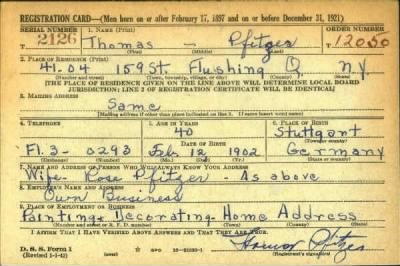 REGISTRATION CARD—(Men born on or after February 17, 1897 and on or before December 31, 1921)
SERIAL NUMBER 1. NAME (Print) ORDER NUMBER
2126 Thomas — Pfitzer 12050
(First) (Middle) (Last)
2. PLACE OF RESIDENCE (Print)
41-04 159 St. Flushing Q. N.Y.
(Number and street) (Town, township, village, or city) (County) (State)
[THE PLACE OF RESIDENCE GIVEN ON THE LINE ABOVE WILL DETERMINE LOCAL BOARD
JURISDICTION; LINE 2 OF REGISTRATION CERTIFICATE WILL BE IDENTICAL]
3. MAILING ADDRESS
Same
[Mailing address if other than place indicated on line 2. If same insert word same]
4. TELEPHONE 5. AGE IN YEARS 6. PLACE OF BIRTH
40 Stuttgart
DATE OF BIRTH (Town or county)
Fl. 3- 0293 Feb. 12 1902 Germany
(Exchange) (Number) (Mo.) (Day) (Yr.) (State or country)
7. NAME AND ADDRESS OF PERSON WHO WILL ALWAYS KNOW YOUR ADDRESS
Wife- Rose Pfitzer - As above
8. EMPLOYER'S NAME AND ADDRESS
Own Business
9. PLACE OF EMPLOYMENT OR BUSINESS
Painting & Decorating- Home Address
(Number and street or R. F. D. number) (Town) (County) (State)
I AFFIRM THAT I HAVE VERIFIED ABOVE ANSWERS AND THAT THEY ARE TRUE.
D. S. S. Form 1
(Revised 1-1-42) Pfitzer